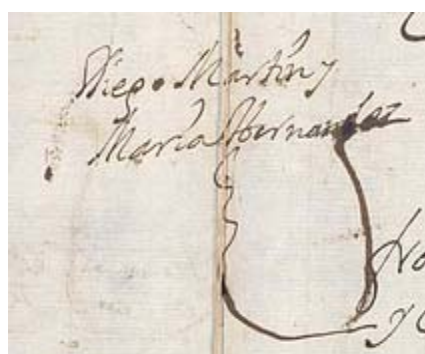 Diego Martin y
Maria Hernandez